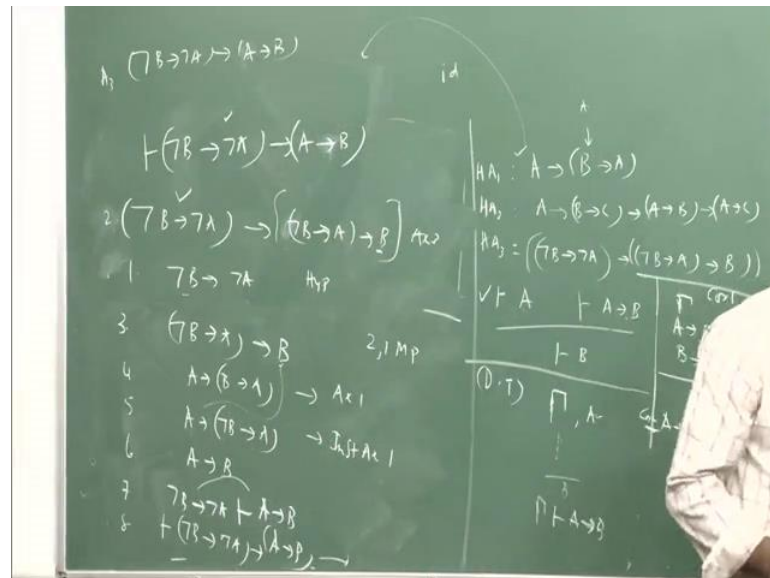 A₃ (¬B→¬A)→(A→B)
⊢(¬B→¬A)→(A→B)
2. (¬B→¬A)→[(¬B→A)→B] Ax3
1. ¬B→¬A Hyp
3 (¬B→A)→B 2,1 MP
4 A→(B→A) → Ax 1
5 A→(¬B→A) → Inst Ax 1
6 A→B
7 ¬B→¬A ⊢ A→B
8 ⊢(¬B→¬A)→(A→B)
id
A
↓
HA₁: A→(B→A)
HA₂: A→(B→C)→(A→B)→(A→C)
HA₃ = ((¬B→¬A)→((¬B→A)→B))
✓⊢ A ⊢ A→B
⊢ B
(D.T)
Γ, A
Γ ⊢ A→B
Γ
A→
B→